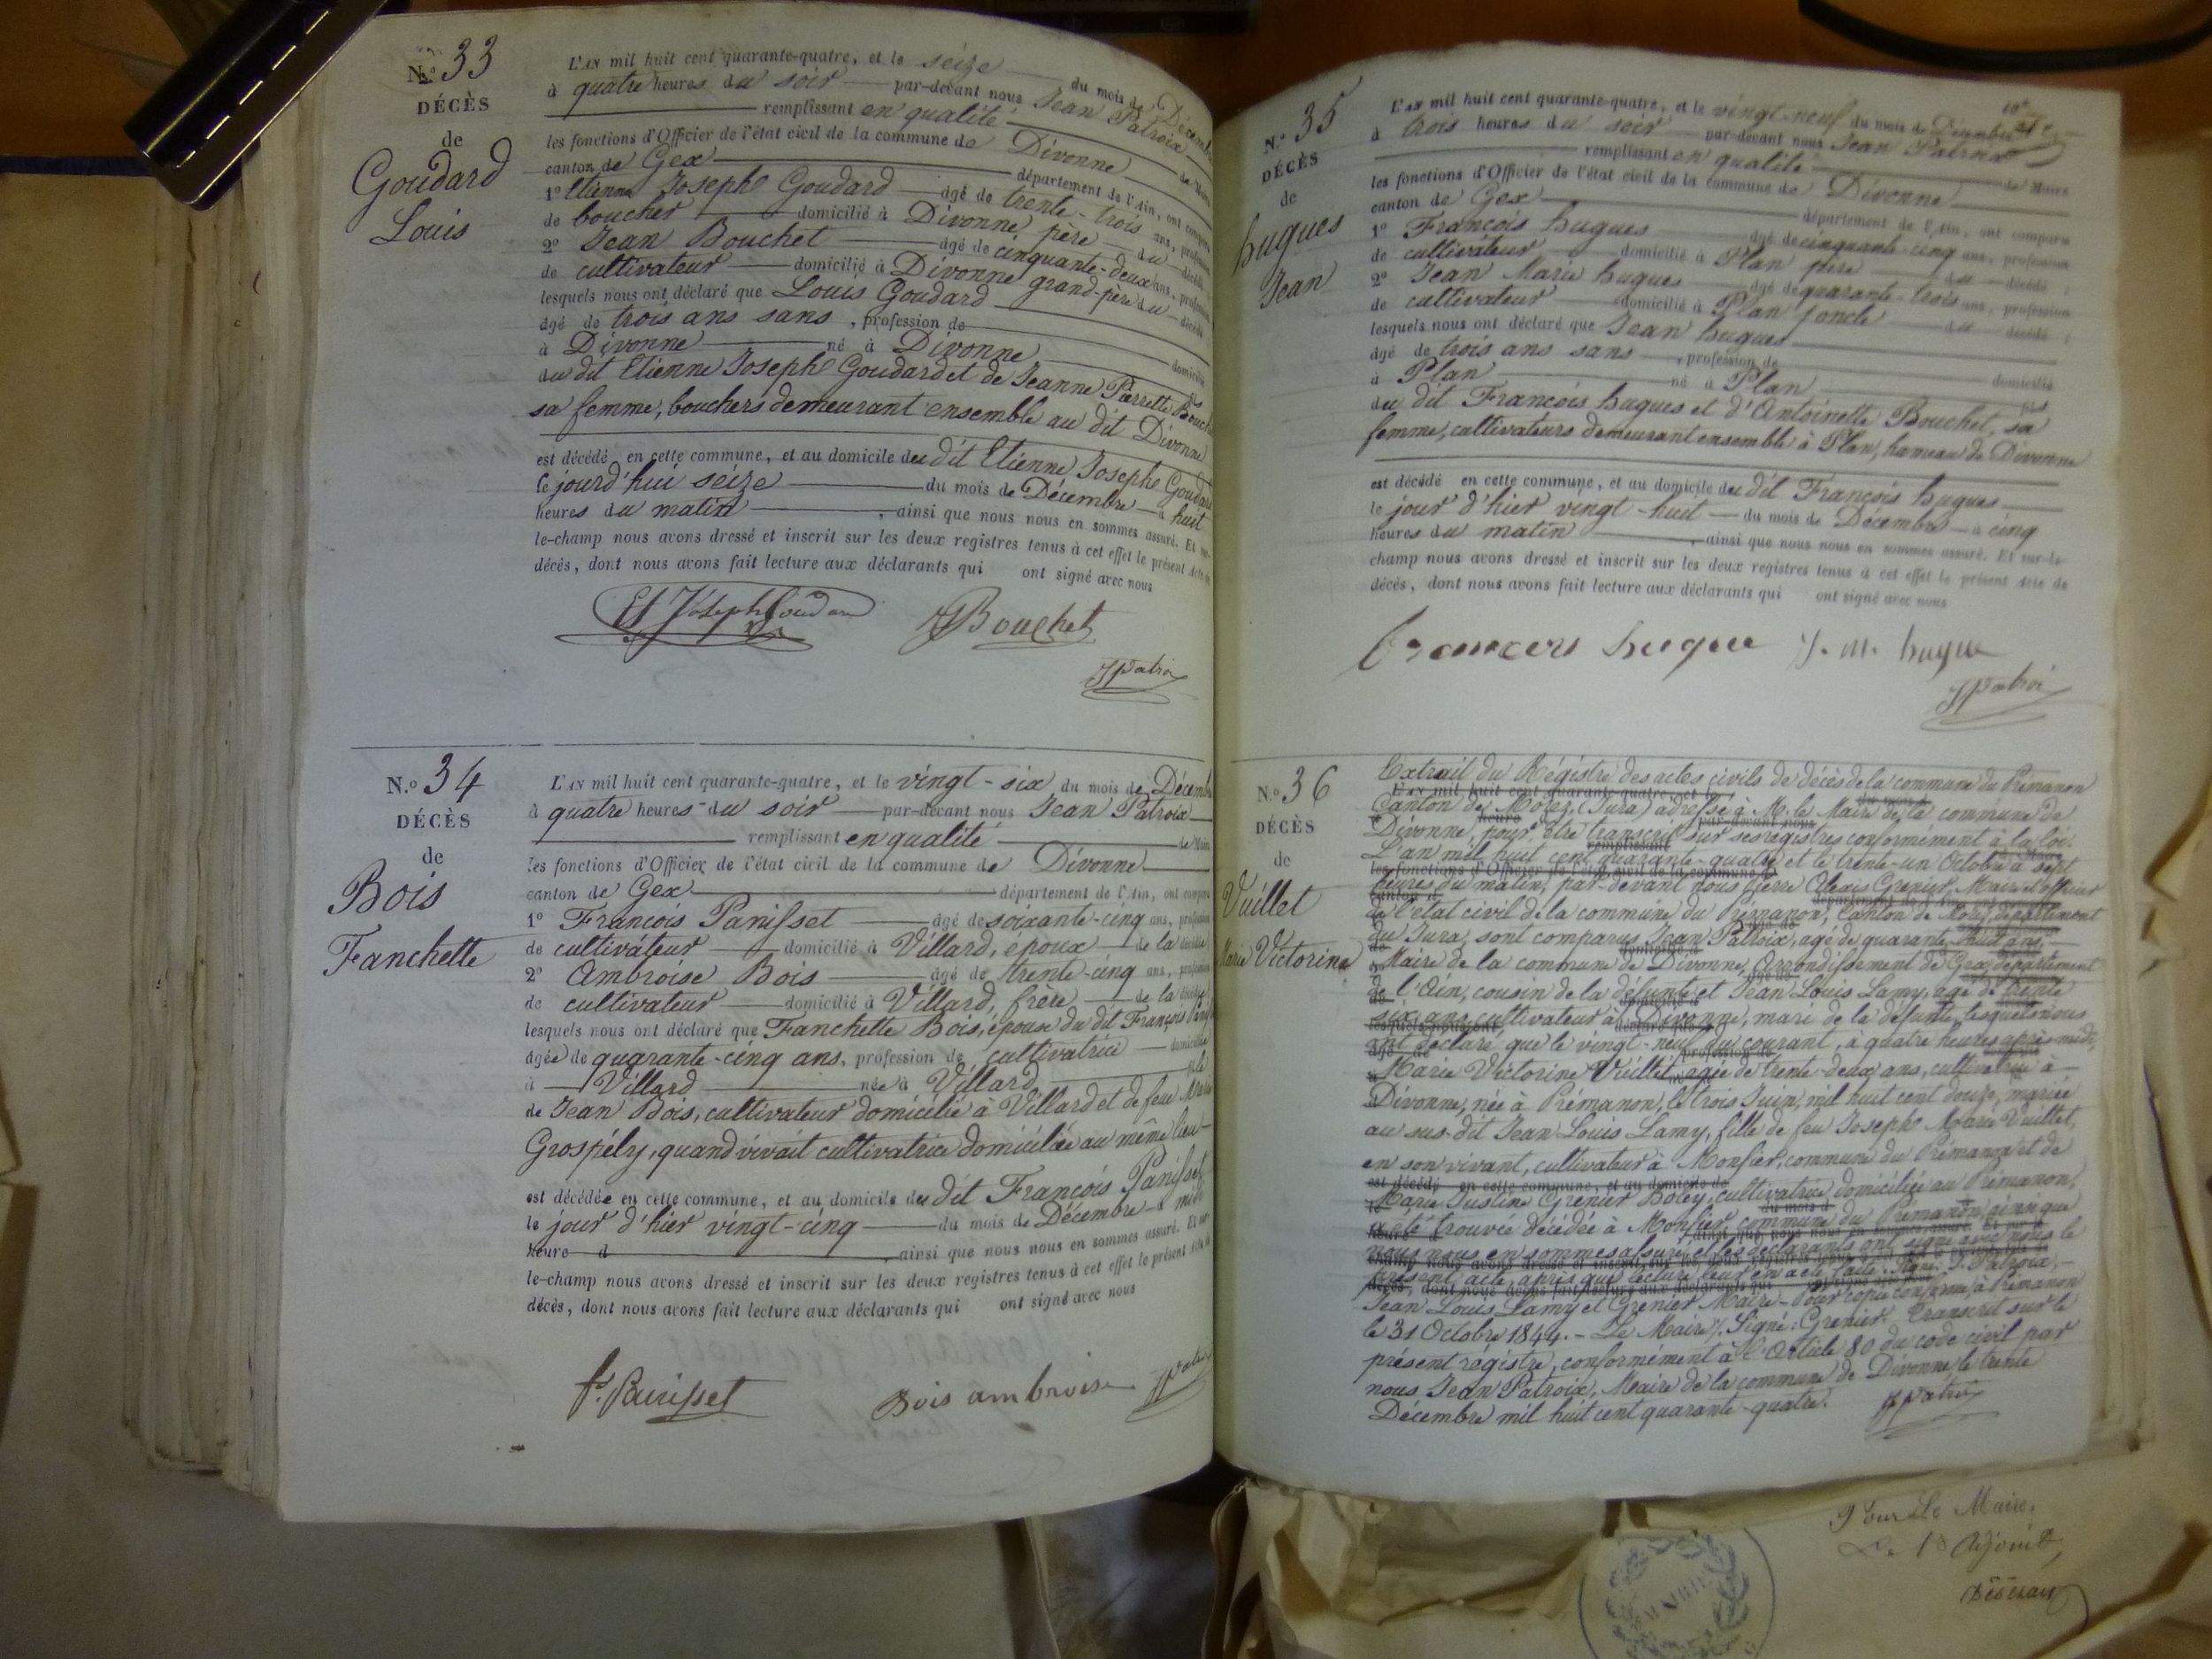 N.º 33
DÉCÈS
de
Goudard
Louis
L'AN mil huit cent quarante-quatre, et le seize du mois de Décemb
à quatre heures du soir par-devant nous Jean Patroix
remplissant en qualité de Maire
les fonctions d'Officier de l'état civil de la commune de Divonne
canton de Gex département de l'Ain, ont comparu
1º Etienne Joseph Goudard âgé de trente-trois ans, profession
de boucher domicilié à Divonne, père du décédé
2º Jean Bouchet âgé de cinquante-deux ans, profession
de cultivateur domicilié à Divonne grand-père du décédé
lesquels nous ont déclaré que Louis Goudard
âgé de trois ans sans, profession de domicilié
à Divonne né à Divonne fils
du dit Etienne Joseph Goudard et de Jeanne Pierrette Bouch
sa femme, bouchers demeurant ensemble au dit Divonne
est décédé en cette commune, et au domicile du dit Etienne Joseph Goudard
le jourd'hui seize du mois de Décembre à huit
heures du matin, ainsi que nous nous en sommes assuré. Et sur-
le-champ nous avons dressé et inscrit sur les deux registres tenus à cet effet le présent Acte de
décès, dont nous avons fait lecture aux déclarants qui ont signé avec nous
Et Joseph Goudard JBouchet
JPatroix
N.º 34
DÉCÈS
de
Bois
Fanchette
L'AN mil huit cent quarante-quatre, et le vingt-six du mois de Décemb
à quatre heures du soir par-devant nous Jean Patroix
remplissant en qualité de Maire
les fonctions d'Officier de l'état civil de la commune de Divonne
canton de Gex département de l'Ain, ont comparu
1º François Panisset âgé de soixante-cinq ans, profession
de cultivateur domicilié à Villard, époux de la décédée
2º Ambroise Bois âgé de trente-cinq ans, profession
de cultivateur domicilié à Villard, frère de la décédée
lesquels nous ont déclaré que Fanchette Bois, épouse du dit François Panisset
âgée de quarante-cinq ans, profession de cultivatrice domiciliée
à Villard née à Villard fille
de Jean Bois, cultivateur domicilié à Villard et de feue Marie
Grospély, quand vivait cultivatrice domiciliée au même lieu
est décédée en cette commune, et au domicile du dit François Panisset
le jour d'hier vingt-cinq du mois de Décembre à midi
heure d, ainsi que nous nous en sommes assuré. Et sur-
le-champ nous avons dressé et inscrit sur les deux registres tenus à cet effet le présent Acte de
décès, dont nous avons fait lecture aux déclarants qui ont signé avec nous
f. Panisset Bois ambroise JPatroix
N.º 35
DÉCÈS
de
hugues
Jean
L'AN mil huit cent quarante-quatre, et le vingt-neuf du mois de Décembre
à trois heures du soir par-devant nous Jean Patroix
remplissant en qualité de Maire
les fonctions d'Officier de l'état civil de la commune de Divonne
canton de Gex département de l'Ain, ont comparu
1º François hugues âgé de cinquante-cinq ans, profession
de cultivateur domicilié à Plan père du décédé
2º Jean Marie hugues âgé de quarante-trois ans, profession
de cultivateur domicilié à Plan, oncle du décédé
lesquels nous ont déclaré que Jean hugues
âgé de trois ans sans, profession de domicilié
à Plan né à Plan fils
du dit François hugues et d'Antoinette Bouchet, sa
femme, cultivateurs demeurant ensemble à Plan, hameau de Divonne
est décédé en cette commune, et au domicile du dit François hugues
le jour d'hier vingt-huit du mois de Décembre à cinq
heures du matin, ainsi que nous nous en sommes assuré. Et sur-le-
champ nous avons dressé et inscrit sur les deux registres tenus à cet effet le présent Acte de
décès, dont nous avons fait lecture aux déclarants qui ont signé avec nous
francois hugue J. M. hugue
JPatroix
N.º 36
DÉCÈS
de
Vuillet
Marie Victorine
Extrait du Régistre des actes civils de décès de la commune du Prémanon
Canton de Morez (Jura) adressé à M. le Maire de la commune de
Divonne, pour être transcrit sur ses registres conformément à la loi.
L'an mil huit cent quarante-quatre et le trente-un Octobre à sept
heures du matin, par-devant nous Pierre Alexis Grenier, Maire et officier
de l'état civil de la commune du Prémanon, Canton de Morez, département
du Jura, sont comparus Jean Patroix, agé de quarante-huit ans,
Maire de la commune de Divonne, Arrondissement de Gex, département
de l'Ain, cousin de la défunte et Jean Louis Lamy, agé de trente
six ans, cultivateur à Divonne, mari de la défunte, lesquels nous
ont déclaré que le vingt-neuf du courant, à quatre heures après midi,
Marie Victorine Vuillet, agée de trente-deux ans, cultivatrice à
Divonne, née à Prémanon, le trois Juin, mil huit cent douze, mariée
au sus-dit Jean Louis Lamy, fille de feu Joseph Marie Vuillet,
en son vivant, cultivateur à Monfier, commune du Prémanon et de
Marie Justine Grenier Boley, cultivatrice domiciliée au Prémanon,
a été trouvée décédée à Monfier, commune du Prémanon, ainsi que
nous nous en sommes assuré, et les déclarants ont signé avec nous le
présent acte, après que lecture leur en a été faite. Signé: J. Patroix,
Jean Louis Lamy et Grenier Maire – Pour copie conforme, à Prémanon
le 31 Octobre 1844. – Le Maire. Signé: Grenier. Transcrit sur le
présent régistre, conformément à l'Article 80 du code civil par
nous Jean Patroix, Maire de la commune de Divonne le trente
Décembre mil huit cent quarante-quatre. JPatroix
Pour Le Maire,
L'Adjoint,
MAIRIE